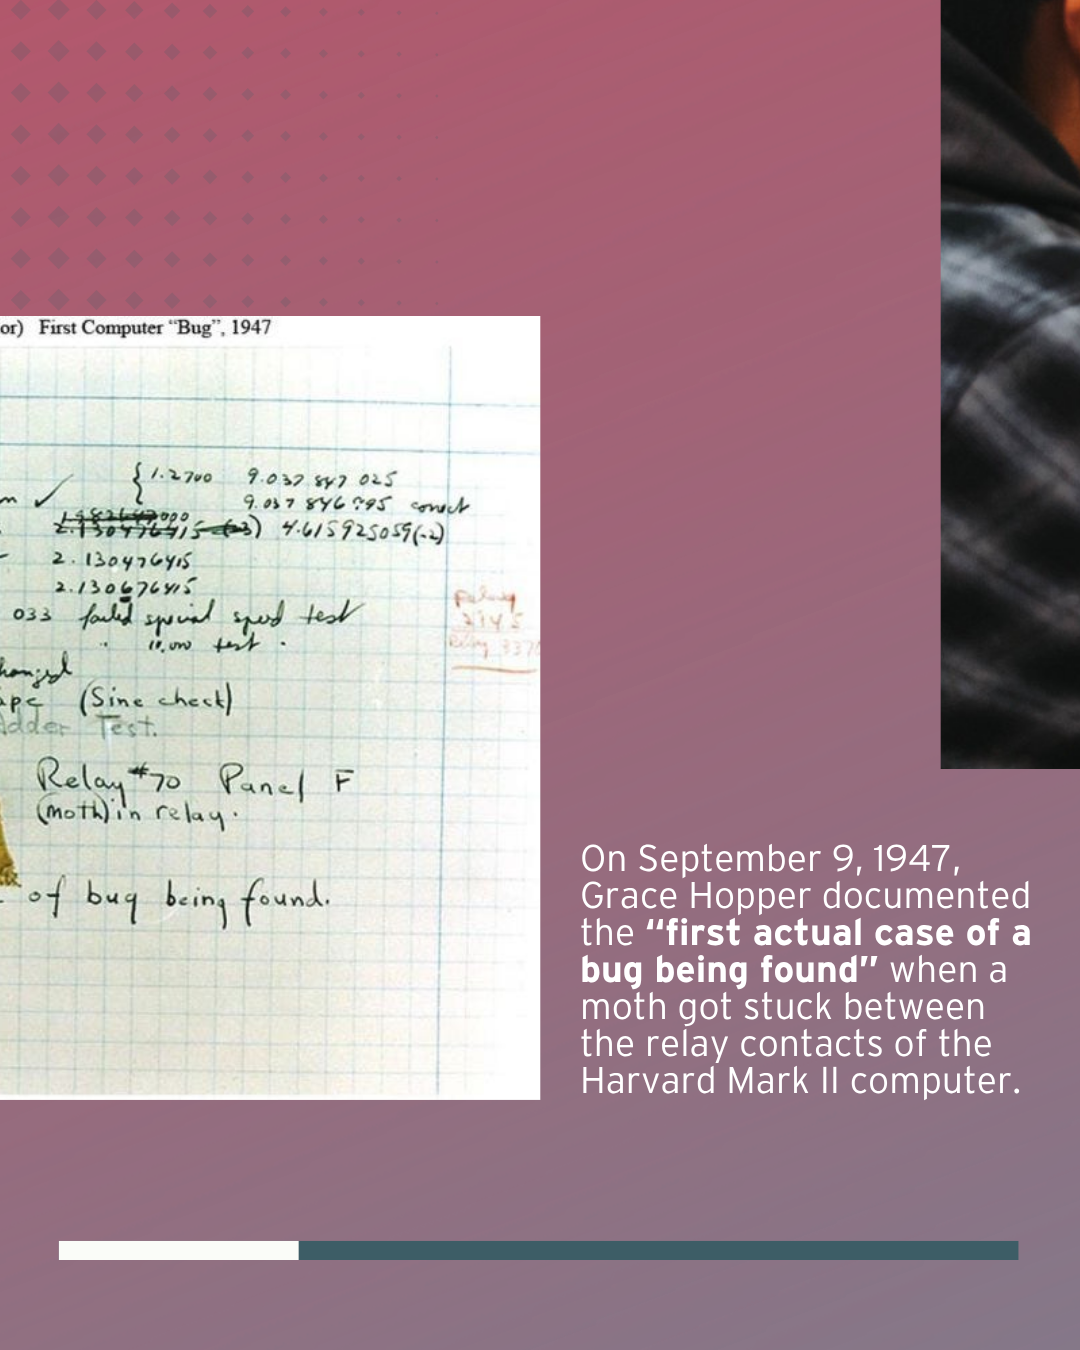 or) First Computer “Bug”, 1947
{ 1.2700 9.037 847 025
9.037 846 995 correct
4.615925059(-2)
2.130476415
2.130676415
033 failed special speed test
" 10,000 test "
Relay
2145
Relay 3370
hanged
ape (Sine check)
Adder Test.
Relay #70 Panel F
(moth) in relay.
of bug being found.
On September 9, 1947,
Grace Hopper documented
the “first actual case of a
bug being found” when a
moth got stuck between
the relay contacts of the
Harvard Mark II computer.